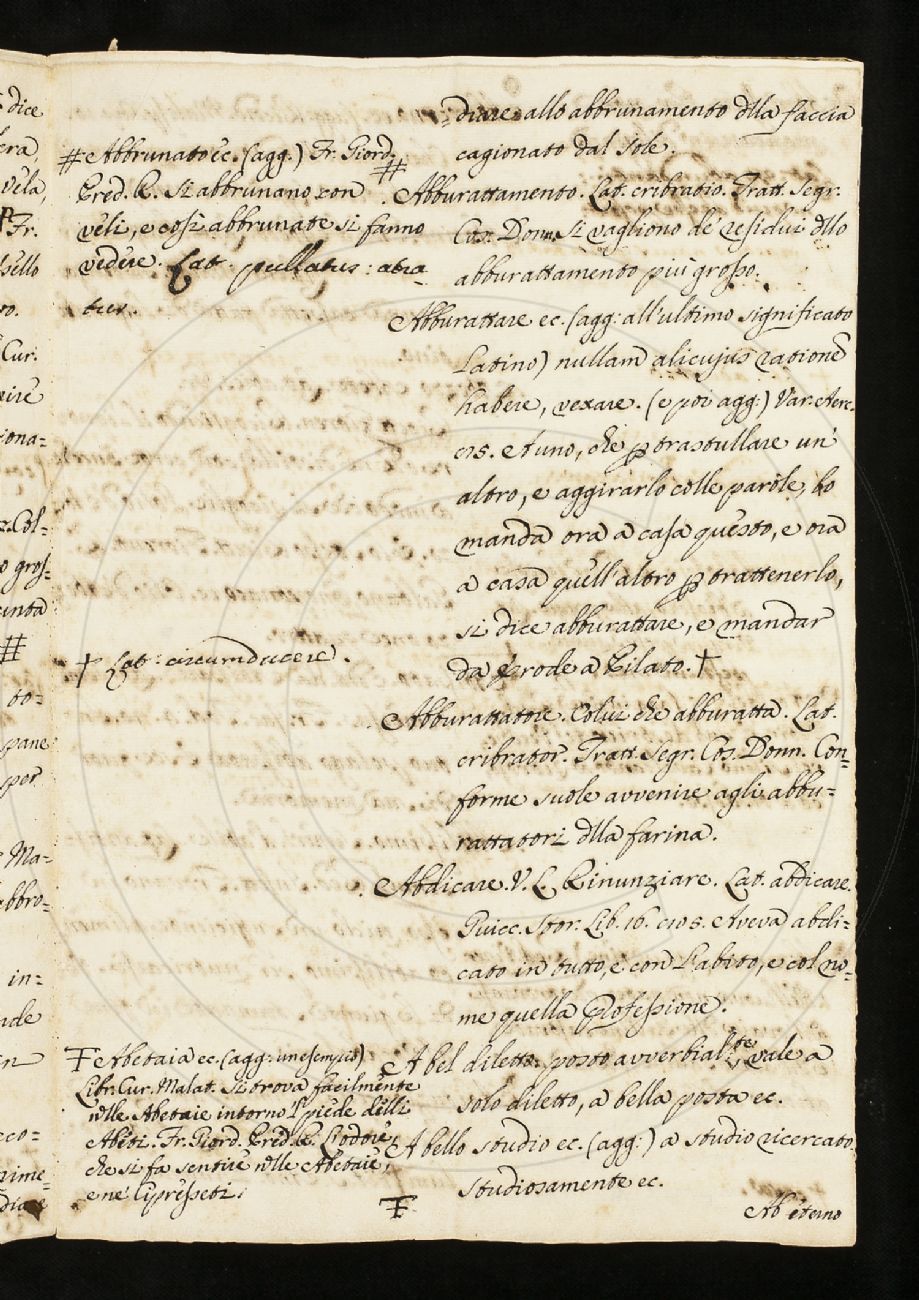 =diare allo abbrunamento dlla faccia
cagionato dal sole.
Abburattamento. Lat. cribratio. Tratt. segr.
Cos. Donn. Si vagliono de' residui dllo
abburattamento piu grosso.
Abburattare ec. (agg: all'ultimo significato
Latino) nullam alicujus rationem
habere, vexare. (e poi agg:) Var. Serc.
c15. A uno, che p trastullare un'
altro, e aggirarlo colle parole, lo
manda ora a casa questo, e ora
a casa quell'altro p trattenerlo,
si dice abburattare, e mandar
da Erode a Pilato. †
Abburattatore. Colui che abburatta. Lat.
cribrator. Tratt. segr. Cos. Donn. Con=
forme suole avvenire agli abbu=
rattatori dlla farina.
Abdicare. V. L. Rinunziare. Lat. abdicare.
Guicc. Stor. Lib. 16. c105. Aveva abdi=
cato in tutto, e con l'abito, e col no=
me quella Professione.
A bel diletto: posto avverbialte. vale a
solo diletto, a bella posta ec.
A bello studio ec. (agg:) a studio ricercato
studiosamente ec.
Ab eterno
# Abbrunato ec. (agg.) Fr. Giord.
Pred. R. Si abbrunano con
veli, e così abbrunate si fanno
vedere. Lat. pullatus: atra=
tus.
#
† Lat: circumducere.
Ŧ Abetaia ec. (agg: un esempio)
Libr. Cur. Malat. Si trova facilmente
nlle Abetaie intorno l piede delli
Abeti. Fr. Giord. Pred. R. L'odore,
che si fa sentire nlle Abetaie,
e ne' Cipresseti.
Ŧ
dice
vela,
Fr.
Cur.
iona=
Col=
o gros=
#
to=
pane
per
Ma=
abbro=
in=